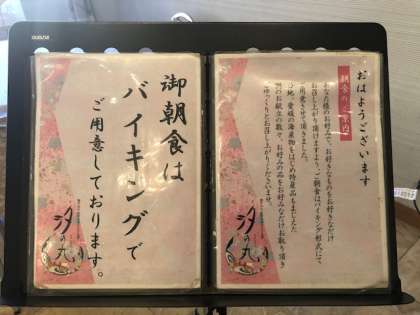 おはようございます
朝食のご案内
あなた様のお好みで、お好きなものをお好きなだけ
お召し上がり頂けますよう、ご朝食はバイキング形式にて
ご用意させて頂きました。
愛媛の海産物をはじめ特産品もまじえた
お献立の数々、お好みの品をお好みなだけお取り頂き
ゆっくりとお召し上がりくださいませ。
汐の丸
御朝食は
バイキングで
ご用意しております。
汐の丸